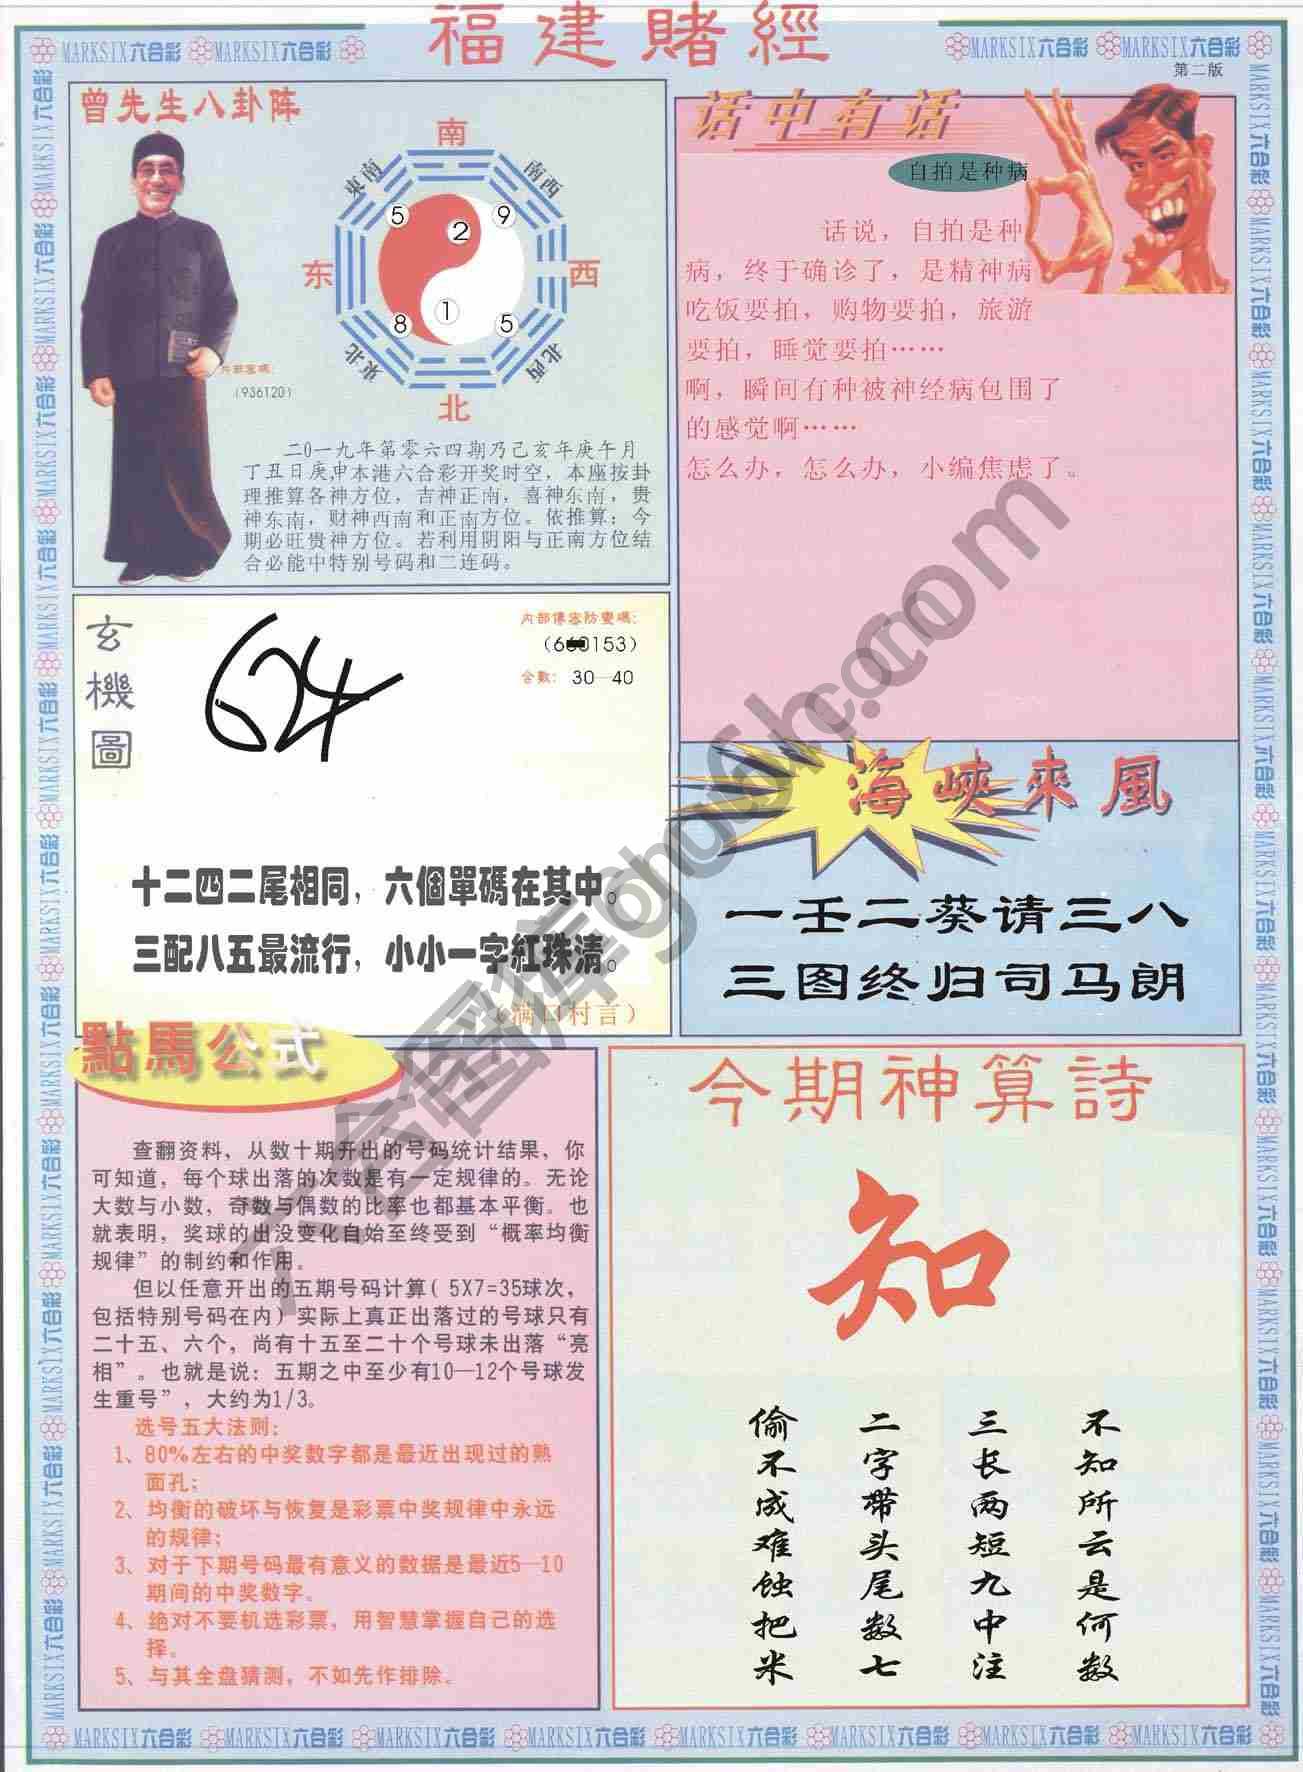 福建賭經
MARKSIX六合彩 MARKSIX六合彩
MARKSIX六合彩 MARKSIX六合彩
第二版
曾先生八卦阵
南
東南
南西
5
2
9
东
西
8
1
5
東北
北西
北
内部密碼:
(936120)
二0一九年第零六四期乃己亥年庚午月
丁丑日庚申本港六合彩开奖时空，本座按卦
理推算各神方位，吉神正南，喜神东南，贵
神东南，财神西南和正南方位。依推算：今
期必旺贵神方位。若利用阴阳与正南方位结
合必能中特别号码和二连码。
话中有话
自拍是种病
话说，自拍是种
病，终于确诊了，是精神病
吃饭要拍，购物要拍，旅游
要拍，睡觉要拍……
啊，瞬间有种被神经病包围了
的感觉啊……
怎么办，怎么办，小编焦虑了。
玄機圖
内部傳密防變碼:
合數: 30—40
十二四二尾相同，六個單碼在其中。
三配八五最流行，小小一字紅珠清。
（满口村言）
海峽來風
一壬二葵请三八
三图终归司马朗
點馬公式
查翻资料，从数十期开出的号码统计结果，你
可知道，每个球出落的次数是有一定规律的。无论
大数与小数，奇数与偶数的比率也都基本平衡。也
就表明，奖球的出没变化自始至终受到“概率均衡
规律”的制约和作用。
但以任意开出的五期号码计算( 5X7=35球次，
包括特别号码在内) 实际上真正出落过的号球只有
二十五、六个，尚有十五至二十个号球未出落“亮
相”。也就是说：五期之中至少有10—12个号球发
生重号”，大约为1/3。
选号五大法则：
1、80%左右的中奖数字都是最近出现过的熟
面孔；
2、均衡的破坏与恢复是彩票中奖规律中永远
的规律；
3、对于下期号码最有意义的数据是最近5—10
期间的中奖数字。
4、绝对不要机选彩票，用智慧掌握自己的选
择。
5、与其全盘猜测，不如先作排除。
今期神算詩
知
不知所云是何数
三长两短九中注
二字带头尾数七
偷不成难蚀把米
MARKSIX六合彩 MARKSIX六合彩 MARKSIX六合彩 MARKSIX六合彩 MARKSIX六合彩 MARKSIX六合彩 MARKSIX六合彩 MARKSIX六合彩